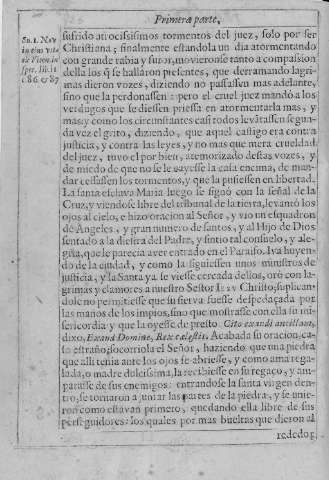 Primera parte,
sufrido atrocissimos tormentos del juez, solo por ser
Christiana; finalmente estandola un dia atormentando
con grande rabia y furor, movieronse tanto a compassion
della los q̃ se hallaron presentes, que derramando lagri-
mas dieron vozes, diziendo no passassen mas adelante,
sino que la perdonassen: pero el cruel juez mandó a los
verdugos que se diessen priessa en atormentarla mas, y
mas: y como los circunstantes casi todos levãtassen segun-
da vez el grito, diziendo, que aquel castigo era contra
justicia, y contra las leyes, y no mas que mera crueldad
del juez, tuvo el por bien, atemorizado destas vozes, y
de miedo de que no se le cayesse la casa encima, de man-
dar cessassen los tormentos, y que la pusiessen en libertad.
La santa esclava Maria luego se signó con la señal de la
Cruz, y viendose libre del tribunal de la tierra, levantó los
ojos al cielo, e hizo oracion al Señor, y vio un esquadron
de Angeles, y gran numero de santos, y al Hijo de Dios
sentado a la diestra del Padre, y sintio tal consuelo, y ale-
gria, que le parecia aver entrado en el Paraiso. Iva huyen-
do de la ciudad, y como la siguiessen unos ministros de
justicia, y la Santa ya se viesse cercada dellos, oró con la-
grimas y clamores a nuestro Señor Iesv Christo, suplican-
dole no permitiesse que su sierva fuesse despedaçada por
las manos de los impios, sino que mostrasse con ella su mi-
sericordia y que la oyesse de presto. Cito exaudi ancillam,
dixo, Exaudi Domine, Rex cælestis. Acabada su oracion, ca-
so estraño, socorriola el Señor, haziendo que una piedra
que alli tenia ante los ojos se abriesse, y como ama rega-
lada, o madre dolcissima, la recibiesse en su regaço, y am-
parasse de sus enemigos: entrandose la santa virgen den-
tro, se tornaron a juntar las partes de la piedra, y se unie-
ron como estavan primero, quedando ella libre de sus
perseguidores: los quales por mas bueltas que dieron al
rededor,